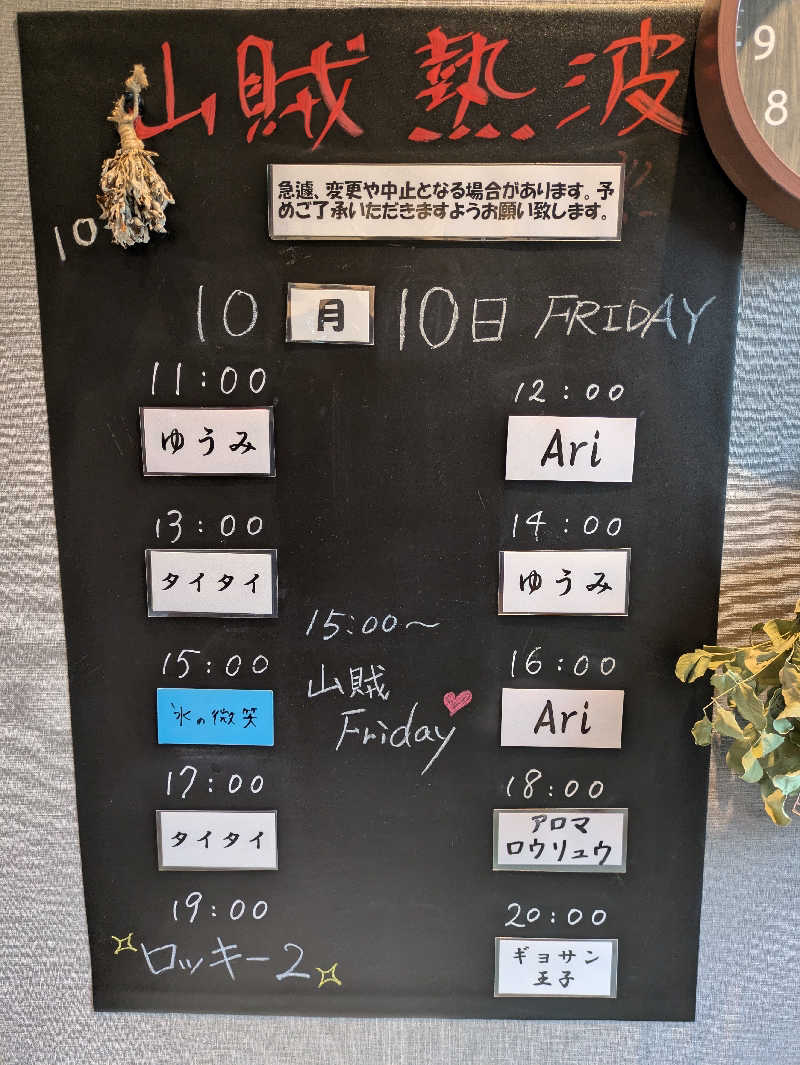 山賊 熱波
急遽、変更や中止となる場合があります。予
めご了承いただきますようお願い致します。
10
10 月 10日 FRIDAY
11:00
ゆうみ
12:00
Ari
13:00
タイタイ
14:00
ゆうみ
15:00
氷の微笑
15:00〜
山賊
Friday
16:00
Ari
17:00
タイタイ
18:00
アロマ
ロウリュウ
19:00
ロッキー2
20:00
ギョサン
王子
9
8